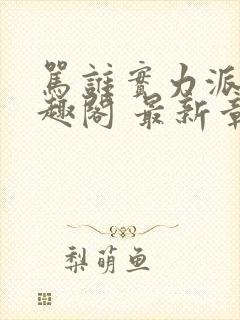 罵誰實力派
趣閣 最新章
梨萌鱼